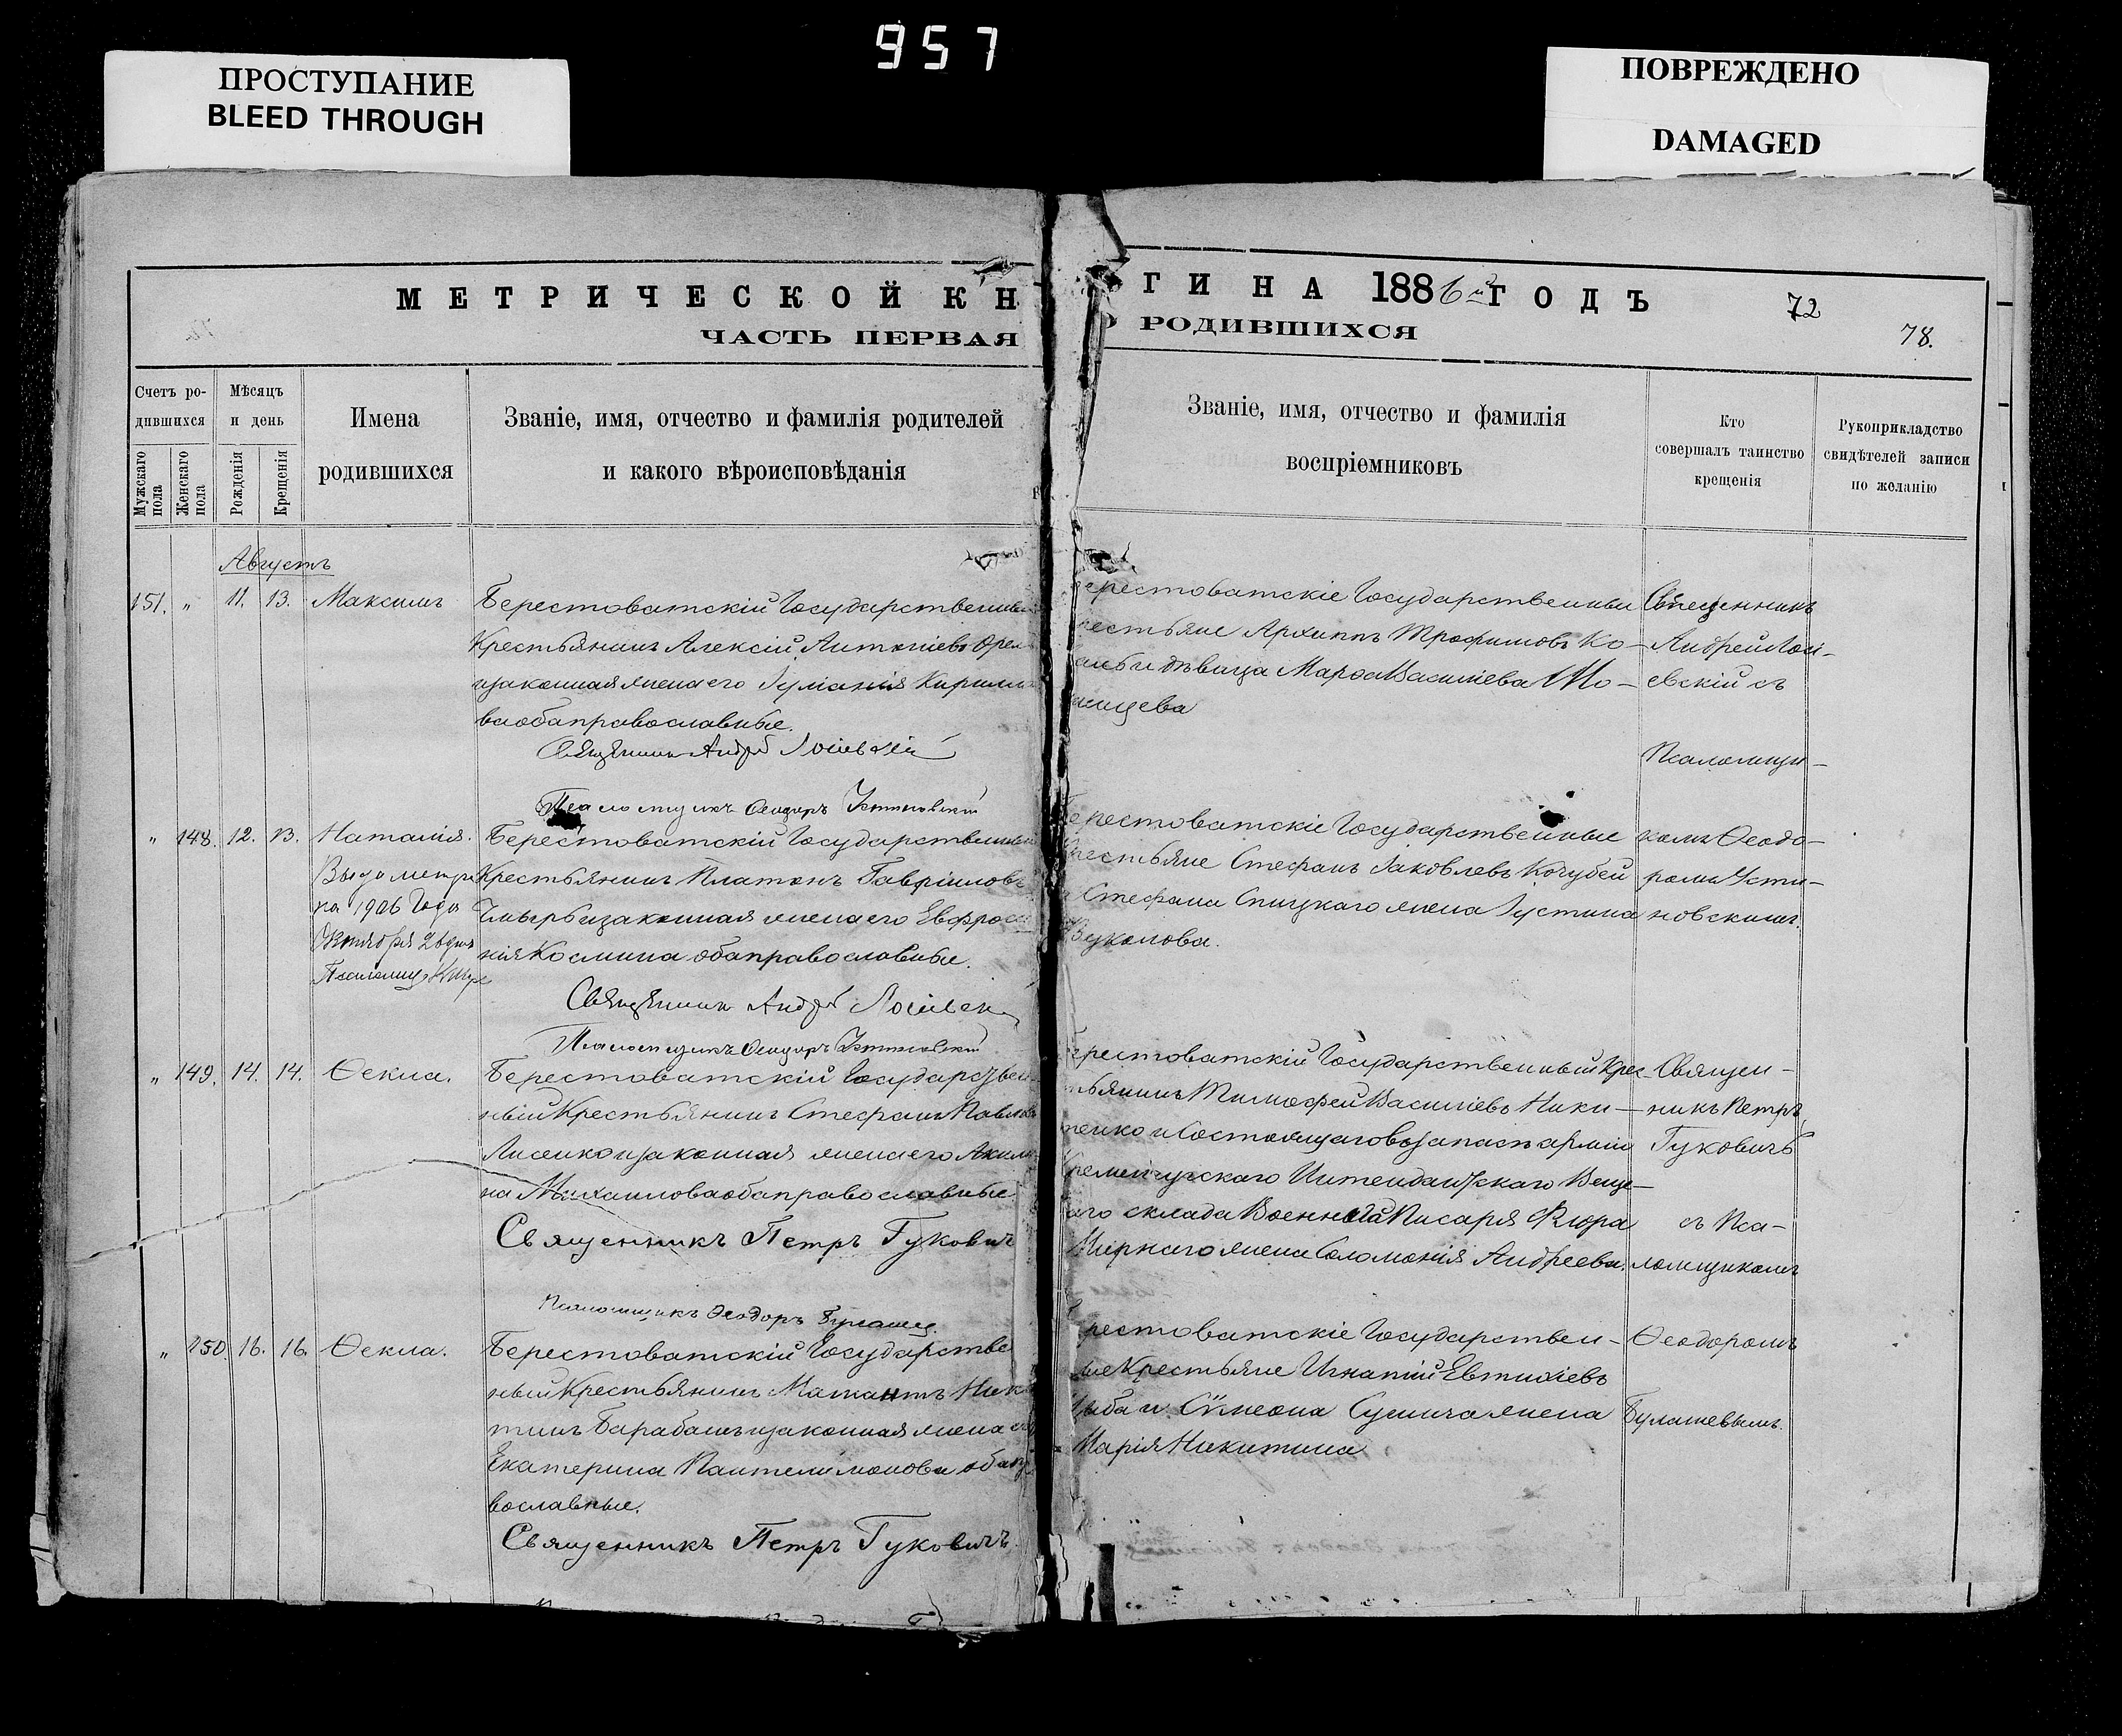 957
ПРОСТУПАНИЕ
BLEED THROUGH
ПОВРЕЖДЕНО
DAMAGED
МЕТРИЧЕСКОЙ КН
ГИ НА 1886й ГОДЪ
72
ЧАСТЬ ПЕРВАЯ
О РОДИВШИХСЯ
78.
Счетъ ро-
дившихся
Мужскаго пола
Женскаго пола
Мѣсяцъ
и день
Рожденія
Крещенія
Имена
родившихся
Званіе, имя, отчество и фамилія родителей
и какого вѣроисповѣданія
Званіе, имя, отчество и фамилія
воспріемниковъ
Кто
совершалъ таинство
крещенія
Рукоприкладство
свидѣтелей записи
по желанію
Августъ
151. " 11. 13. Максимъ
Берестоватскій Государственны
Крестьянинъ Алексій Антоніевъ
изаконная жена его Іуліанія Кирилло
ваобаправославные.
Священникъ Андрей Лосіевскій
Псаломщикъ Ѳеодоръ Устиновскій
ерестоватскіе Государственны
рестьяне Архипъ Трофимовъ Ко-
аль и дѣвица Марѳа Василіева
Священникъ
Андрей Лосі-
евскій съ
Псаломщи-
" 148. 12. 13. Наталія.
на 1906 года
Октября
Берестоватскій Государственный
Крестьянинъ Платонъ Гавріиловъ
изаконная жена его Евфроси
нія Космина обаправославные.
Священникъ Андрей Лосіевск
Псаломщикъ Ѳеодоръ Устиновскій
Берестоватскіе Государственные
рестьяне Стефанъ Іаковлевъ Кочубей
Стефана Спицкаго жена Іустина
Вуколова.
комъ Ѳеодо-
ромъ Усти-
новскимъ.
" 149. 14. 14. Ѳекла.
Берестоватскій Государствен
ный Крестьянинъ Стефанъ Павлов
Лисенко изаконная жена его Акили
на Михаиловаобаправославные.
Священникъ Петръ Гуковичъ
Псаломщикъ Ѳеодоръ
ерестоватскій Государственный Крес-
тьянинъ Тимофей Василіевъ Ники-
тенко и Состоящаговъ запасѣ арміи
ременчугскаго Интендантскаго Веще-
аго склада Военнаго Писаря
Мирнаго жена Соломонія Андреева.
Священ-
никъ Петръ
Гуковичъ
съ Пса-
ломщикомъ
" 150. 16. 16. Ѳекла.
Берестоватскій Государстве
ный Крестьянинъ Ник
тинъ Барабашъ изаконная жена его
Екатерина Пантелимонова обапра
вославные.
Священникъ Петръ Гуковичъ.
рестоватскіе Государствен-
ые Крестьяне Игнатій Евтихіевъ
Цыба и Сѵмеона жена
Марія Никитина
Ѳеодоромъ
Булашевымъ.